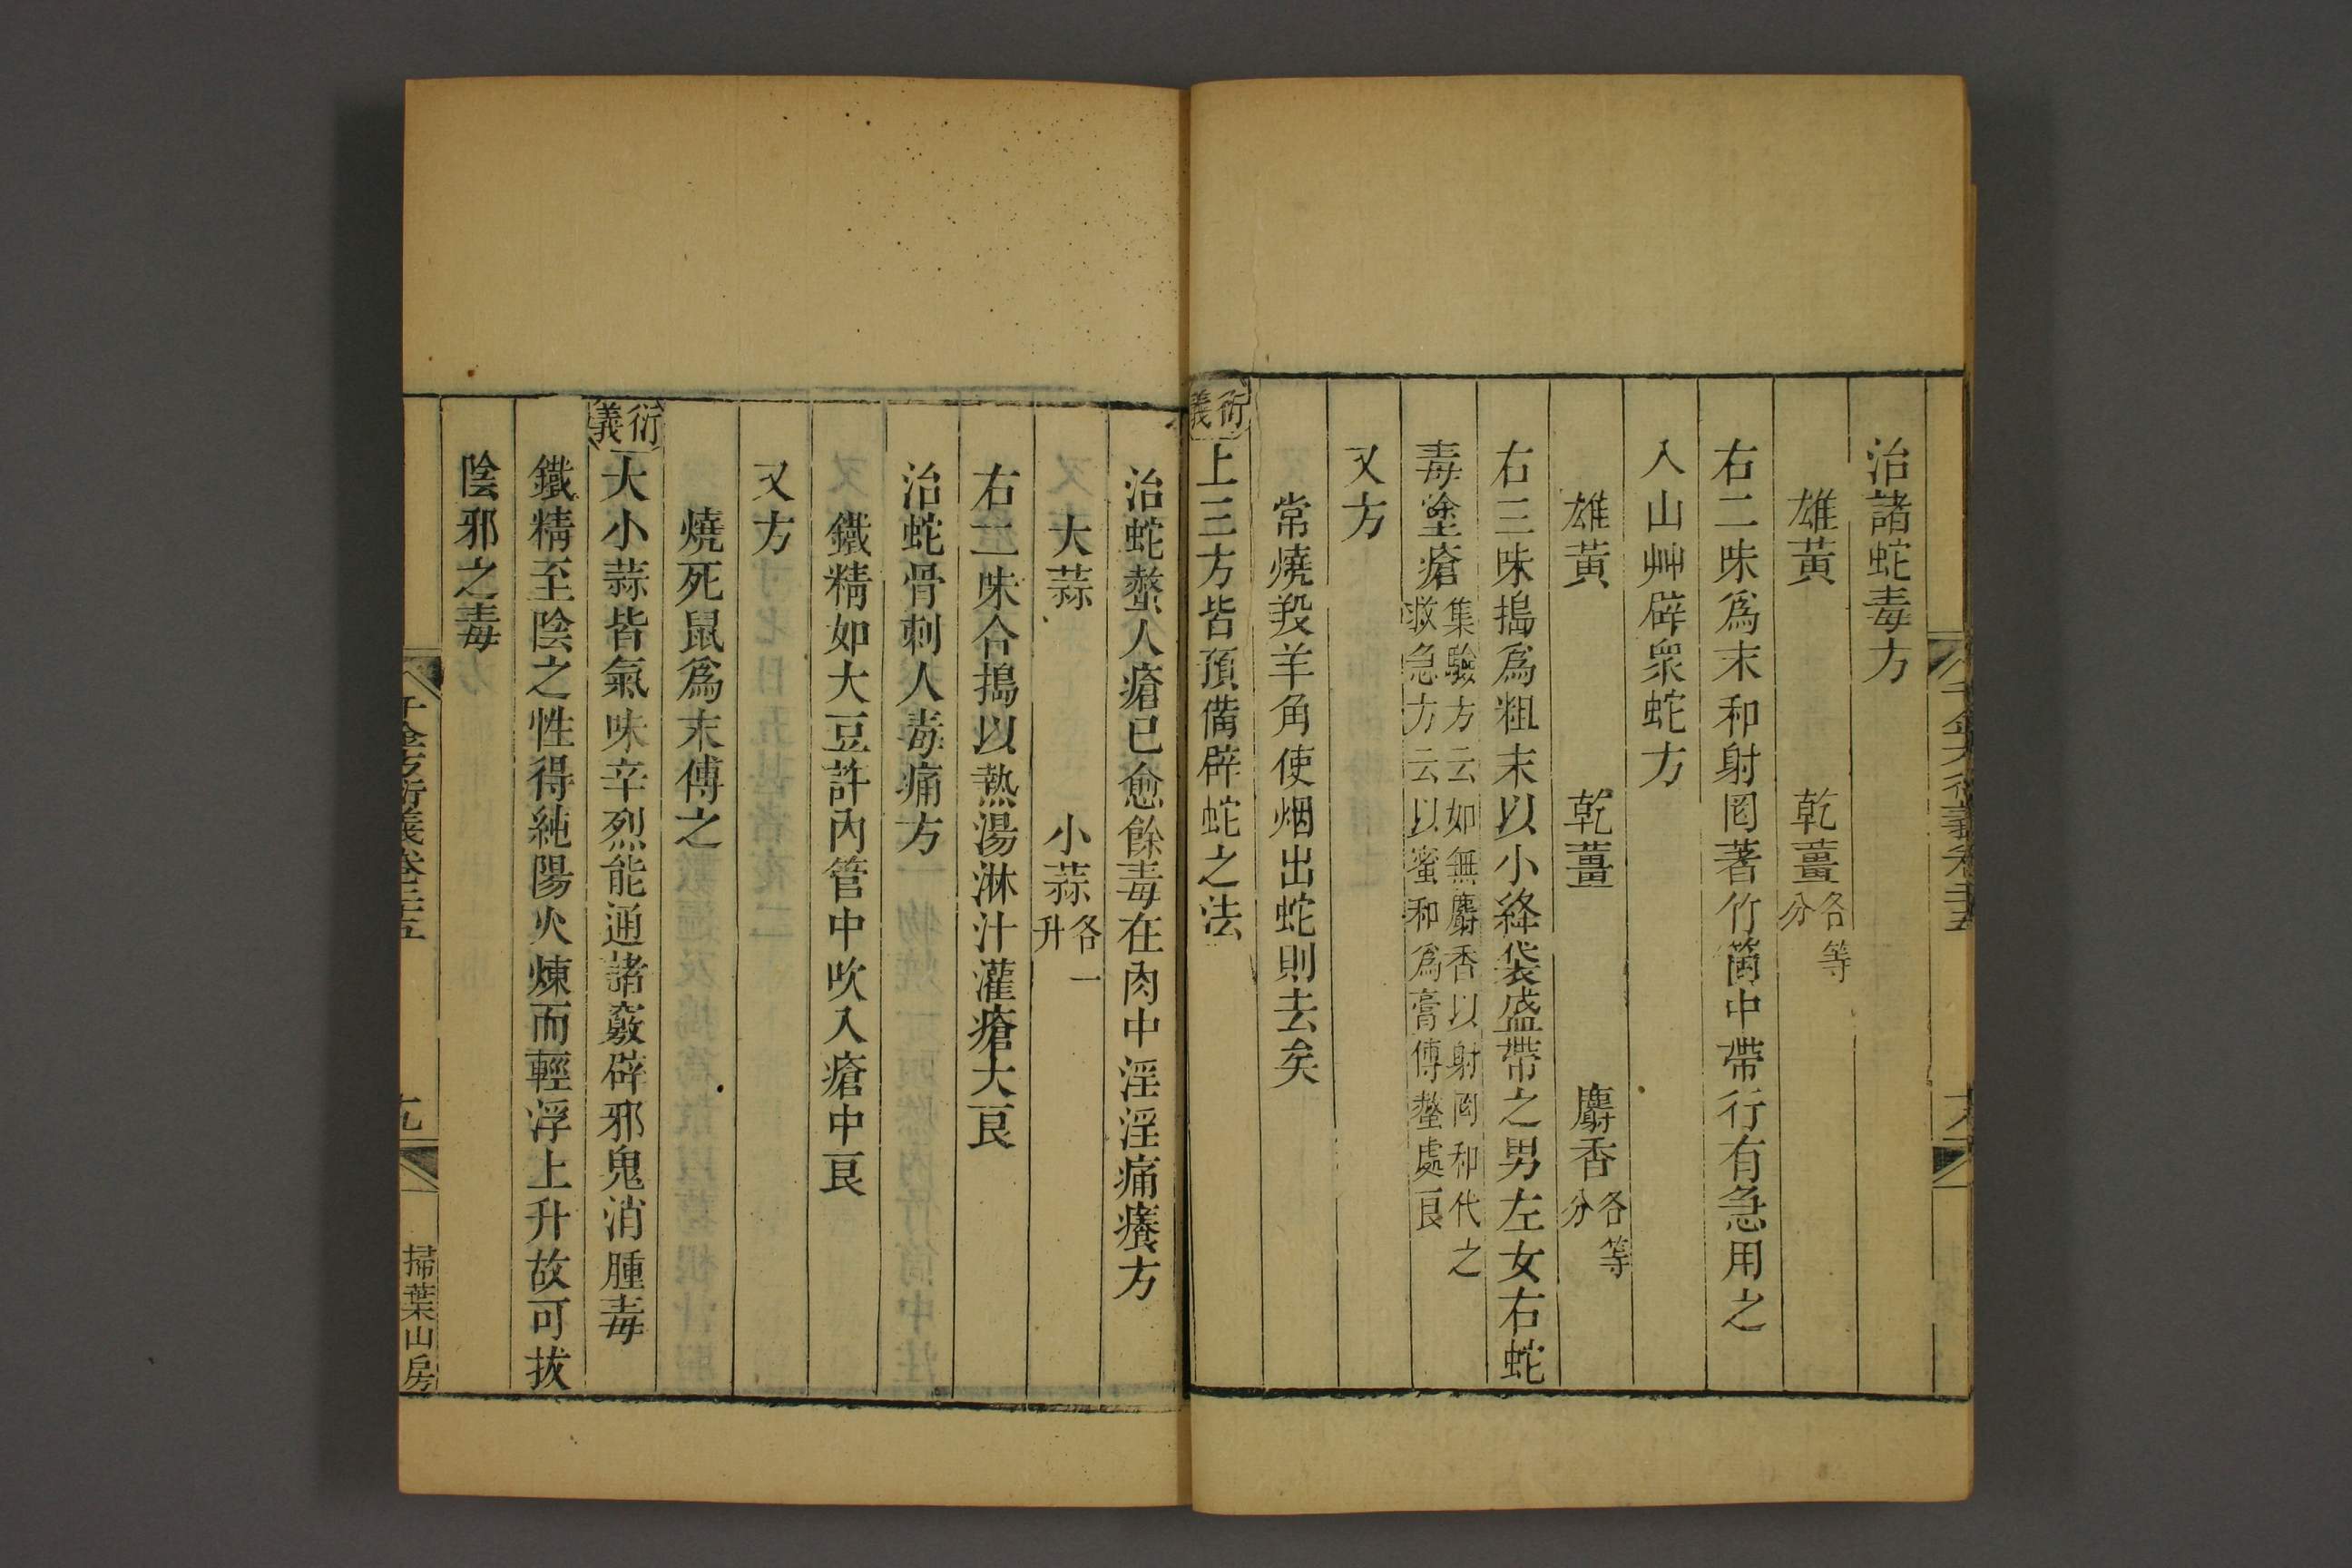 治諸蛇毒方
雄黃 乾薑各等分
右二味爲末和射罔著竹筒中帶行有急用之
入山艸辟衆蛇方
雄黃 乾薑 麝香各等分
右三味搗爲粗末以小絳袋盛帶之男左女右蛇
毒塗瘡集驗方云如無麝香以射罔和代之救急方云以蜜和爲膏傅螫處良
又方
常燒羖羊角使烟出蛇則去矣
衍義上三方皆預備辟蛇之法
治蛇螫人瘡已愈餘毒在肉中淫淫痛癢方
大蒜 小蒜各一升
右二味合搗以熱湯淋汁灌瘡大良
治蛇骨刺人毒痛方
鐵精如大豆許內管中吹入瘡中良
又方
燒死鼠爲末傅之
衍義大小蒜皆氣味辛烈能通諸竅辟邪鬼消腫毒
鐵精至陰之性得純陽火煉而輕浮上升故可拔
陰邪之毒
千金方衍義卷二十五 九 掃葉山房